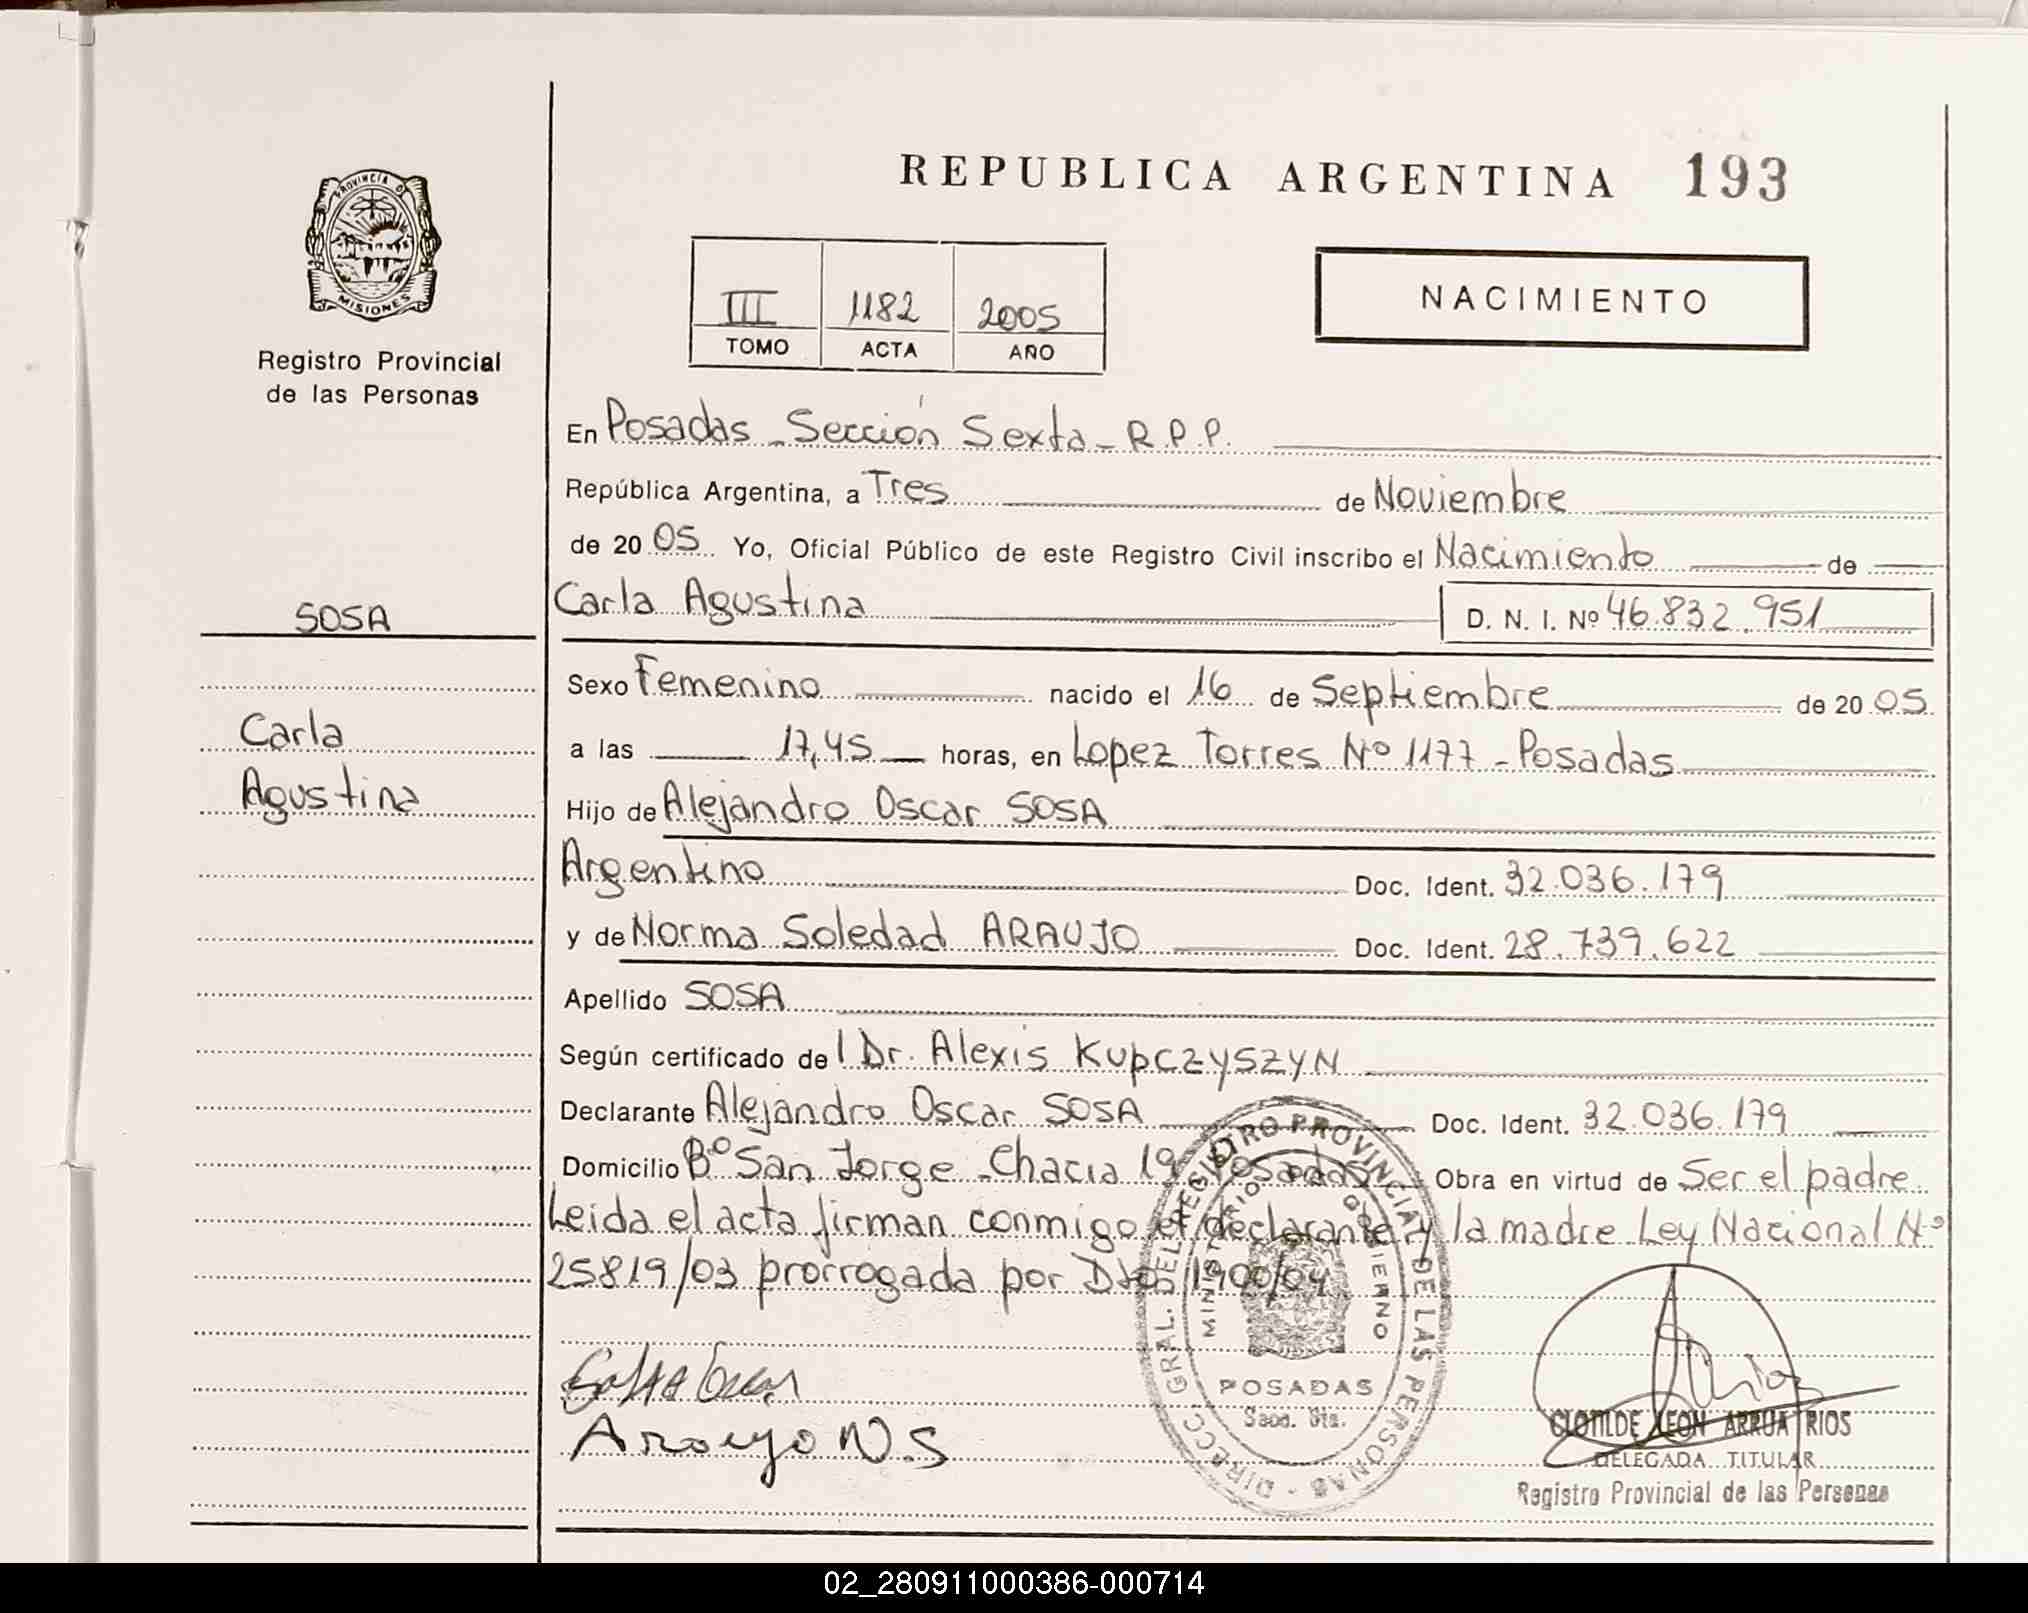 REPUBLICA ARGENTINA 193
PROVINCIA D
MISIONES
Registro Provincial
de las Personas
III 1182 2005
TOMO ACTA AÑO
NACIMIENTO
En Posadas - Sección Sexta - R.P.P.
República Argentina, a Tres de Noviembre
de 2005 Yo, Oficial Público de este Registro Civil inscribo el Nacimiento de
Carla Agustina D. N. I. Nº 46.832.951
SOSA
Carla
Agustina
Sexo Femenino nacido el 16 de Septiembre de 2005
a las 17,45 horas, en Lopez Torres Nº 1177 - Posadas
Hijo de Alejandro Oscar SOSA
Argentino Doc. Ident. 32.036.179
y de Norma Soledad ARAUJO Doc. Ident. 28.739.622
Apellido SOSA
Según certificado del Dr. Alexis KUPCZYSZYN
Declarante Alejandro Oscar SOSA Doc. Ident. 32.036.179
Domicilio Bº San Jorge - Chacra 19 - Posadas Obra en virtud de Ser el padre
Leida el acta firman conmigo el declarante y la madre Ley Nacional Nº
25819/03 prorrogada por Dto. 1900/04
DIRECC. GRAL. DEL REGISTRO PROVINCIAL DE LAS PERSONAS
MINISTERIO DE GOBIERNO
POSADAS
Secc. 6ta.
Sosa Oscar
N.S
CLOTILDE LEON ARRUA RIOS
DELEGADA TITULAR
Registro Provincial de las Personas
02_280911000386-000714